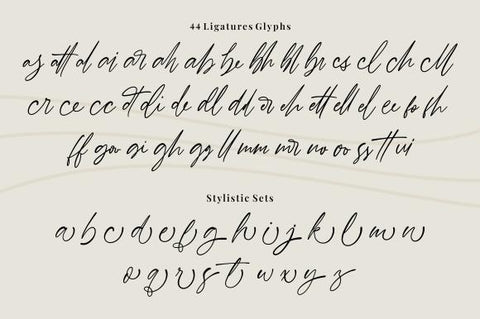 44 Ligatures Glyphs
as att al ai ar ah ab be bh bl br cs cl ch cll
cr ce cc ct di de dl dd er eh ett ell el ee fo fh
ff ga gi gh gg ll mm mr no oo ss tt ui
Stylistic Sets
a b c d e f g h i j k l m n
o q r s t w x y z